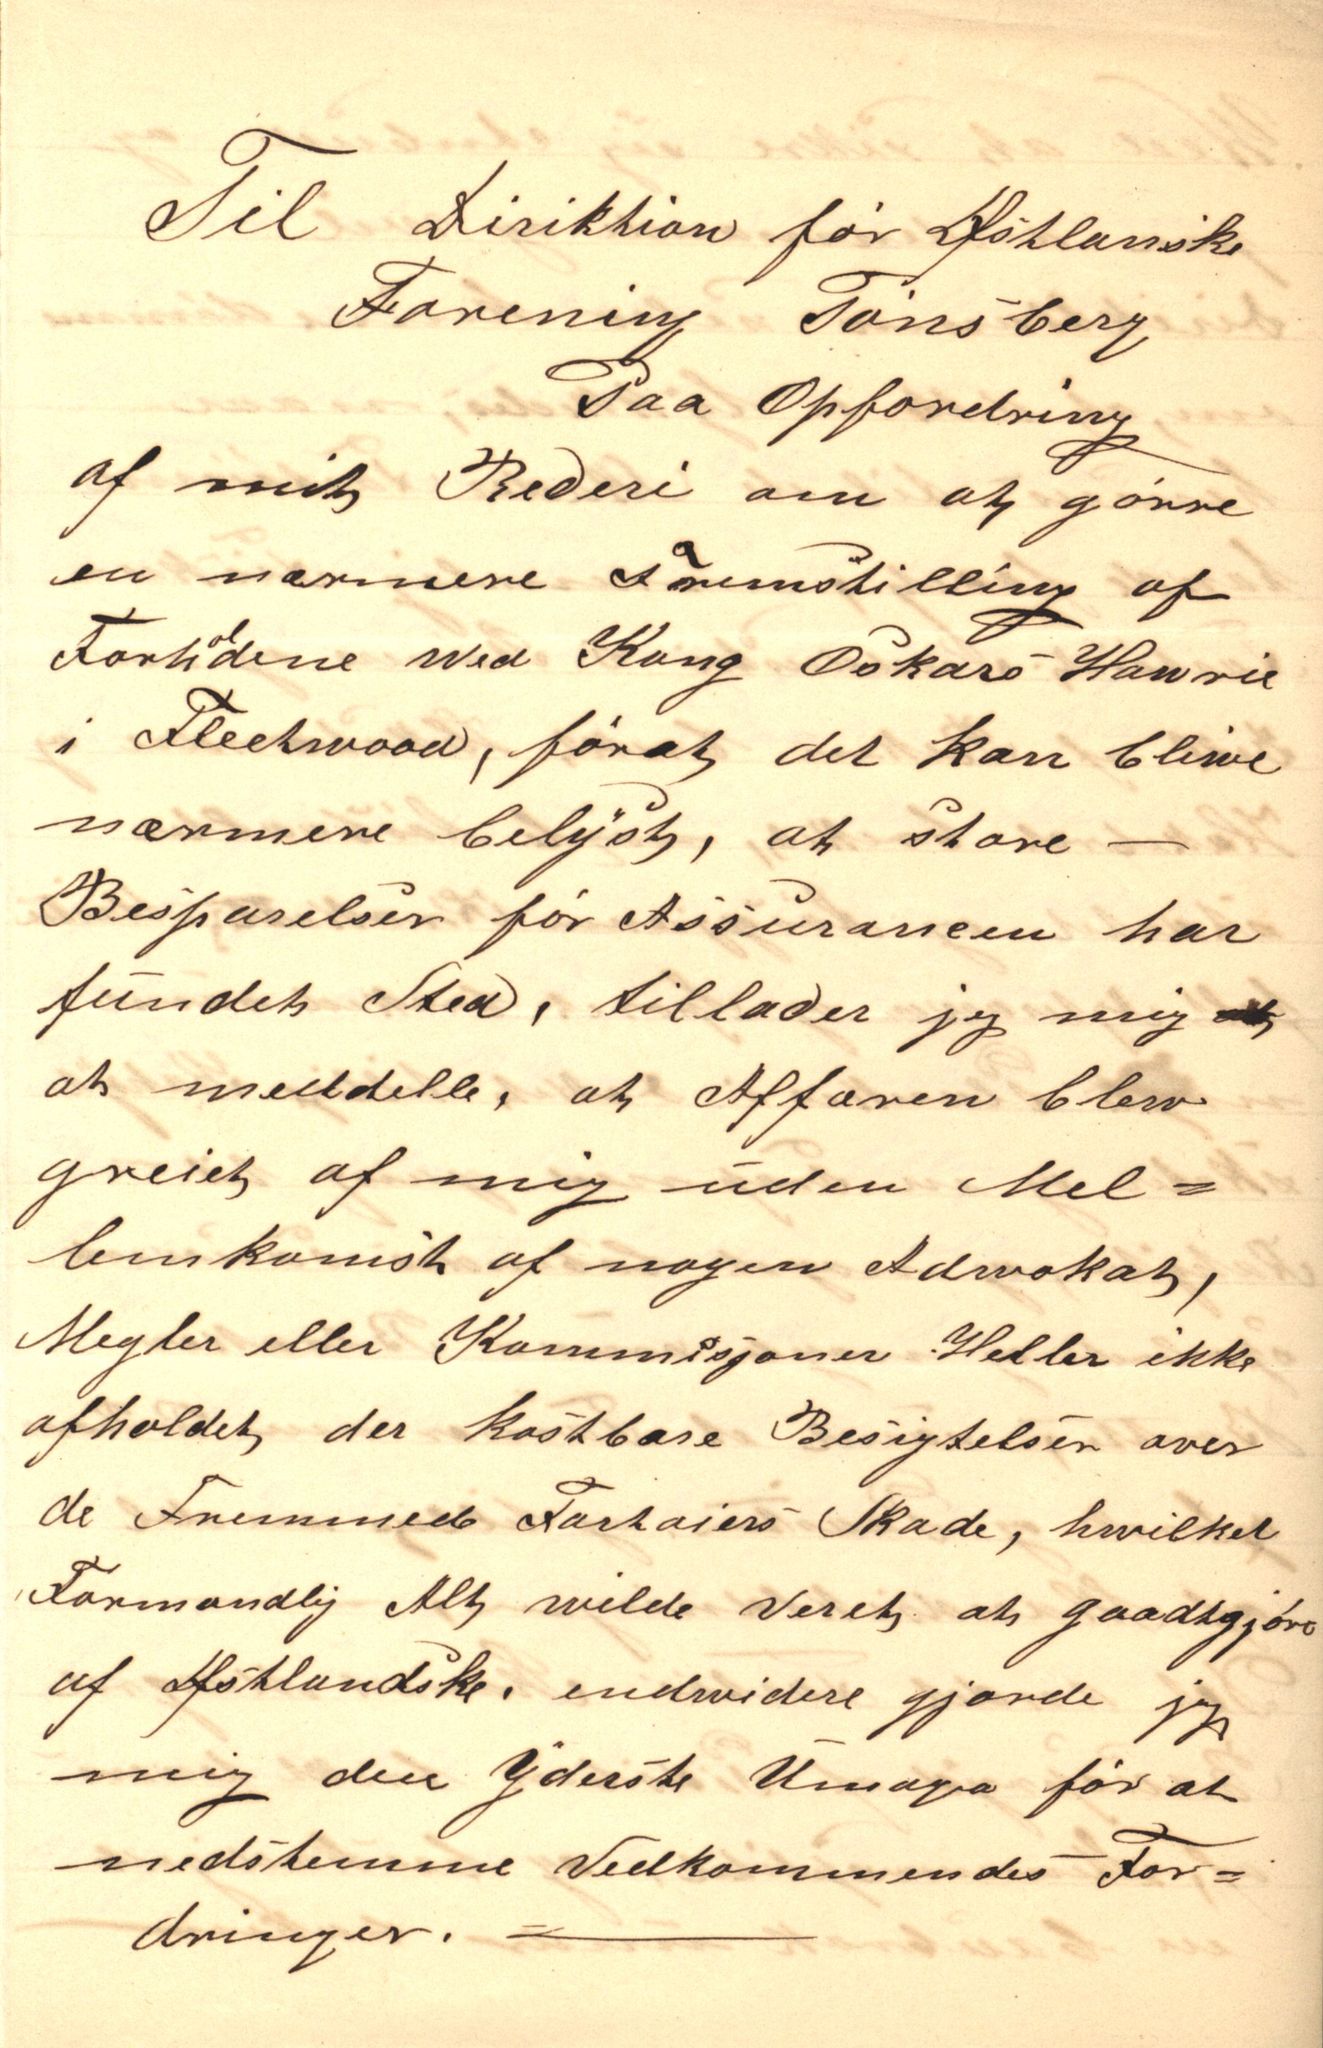 Til Diriktion før Østlanske
Forening Tønsberg
Paa Opfordring
af mit Rederi om at gørre
en nærmere Fremstilling af
Forholdene wed Kong Oskars Hawrie
i Fleetwood, førat det kan bliwe
nærmere belyst, at store —
Besparelser før Assurancen har
fundet Sted, tillader jeg mig
at meddelle, at Affæren blew
greiet af mig uden Mel=
lemkomst af nogen Adwokat,
Megler eller Kommisjoner Heller ikke
afholdet der kostbare Besigtelser over
de Fremmede Fartøiers Skade, hwilket
Formondlig Alt wilde veret at gaadtgjøre
af Østlandske. endwidere gjorde jeg
mig den Yderste Umage før at
nedstemme Vedkommendes For=
dringer. —